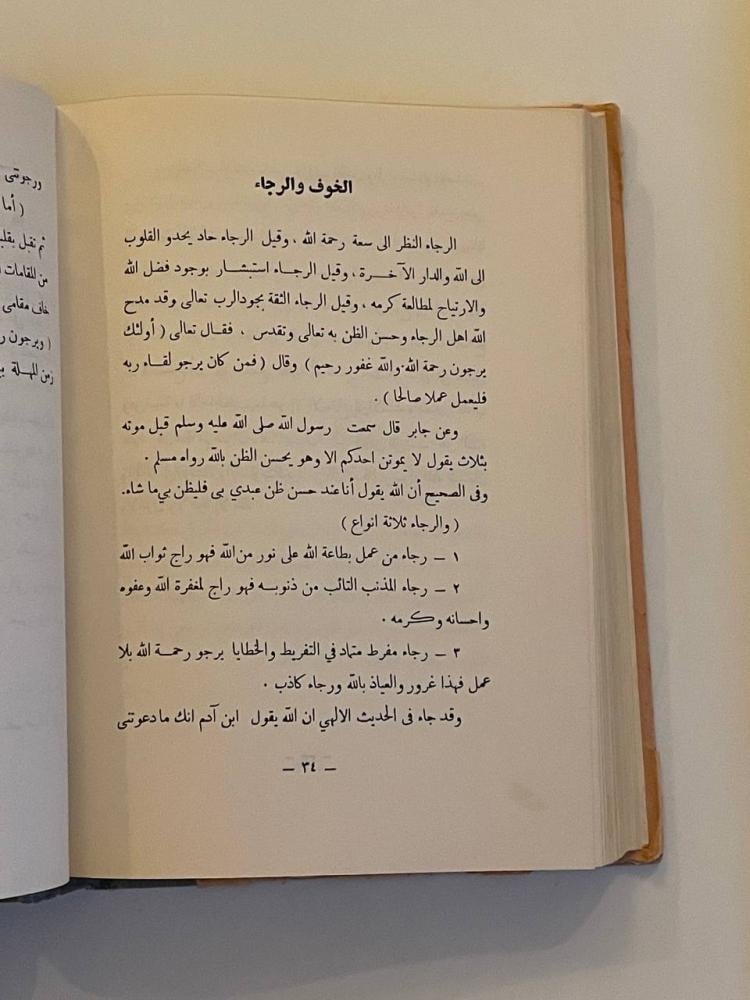 الخوف والرجاء
الرجاء النظر الى سعة رحمة الله ، وقيل الرجاء حاد يحدو القلوب
الى الله والدار الآخرة ، وقيل الرجاء استبشار بوجود فضل الله
والارتياح لمطالعة كرمه ، وقيل الرجاء الثقة بجود الرب تعالى وقد مدح
الله اهل الرجاء وحسن الظن به تعالى وتقدس ، فقال تعالى ( أولئك
يرجون رحمة الله والله غفور رحيم ) وقال ( فمن كان يرجو لقاء ربه
فليعمل عملا صالحا ) .
وعن جابر قال سمعت رسول الله صلى الله عليه وسلم قبل موته
بثلاث يقول لا يموتن احدكم الا وهو يحسن الظن بالله رواه مسلم .
وفى الصحيح أن الله يقول أنا عند حسن ظن عبدي بى فليظن بي ما شاء.
( والرجاء ثلاثة انواع )
١ – رجاء من عمل بطاعة الله على نور من الله فهو راج ثواب الله
٢ – رجاء المذنب التائب من ذنوبه فهو راج لمغفرة الله وعفوه
واحسانه وكرمه .
٣ – رجاء مفرط متماد في التفريط والخطايا يرجو رحمة الله بلا
عمل فهذا غرور والعياذ بالله ورجاء كاذب .
وقد جاء فى الحديث الالهي ان الله يقول ابن آدم انك ما دعوتنى
– ٣٤ –
ورجوتنى
( أما
ثم تقبل بقلبك
من المقامات
خاف مقامى
( ويرجون
زمن المهلة